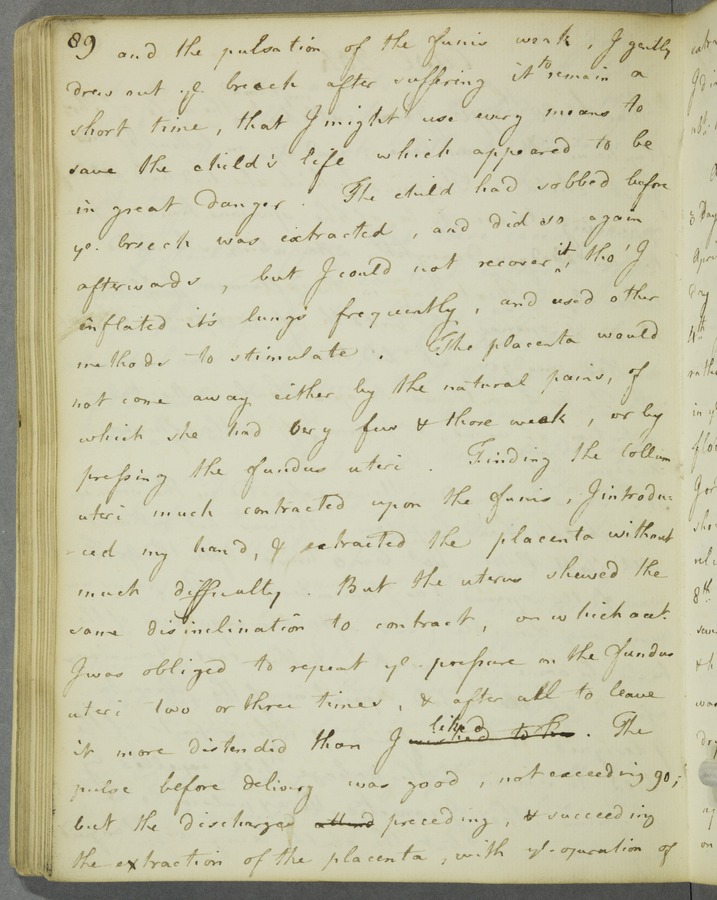 89 and the pulsation of the funis weak, I gently
drew out ye. breach after suffering it to remain a
short time, that I might use every means to
save the child's life which appeared to be
in great danger. The child had sobbed before
ye. breech was extracted, and did so again
afterwards, but I could not recover it, tho' I
inflated it's lungs frequently, and used other
methods to stimulate. The placenta would
not come away either by the natural pains, of
which she had very few & those weak, or by
pressing the fundus uteri. Finding the Collum
uteri much contracted upon the funis, I introdu
-ced my hand, & extracted the placenta without
much difficulty. But the uterus shewed the
same disinclination to contract, on which acct.
I was obliged to repeat ye. pressure on the fundus
uteri two or three times, & after all to leave
it more distended than I liked wished to. The
pulse before delivery was good, not exceeding 90;
but the discharges preceding, & succeeding
the extraction of the placenta, with ye. operation of